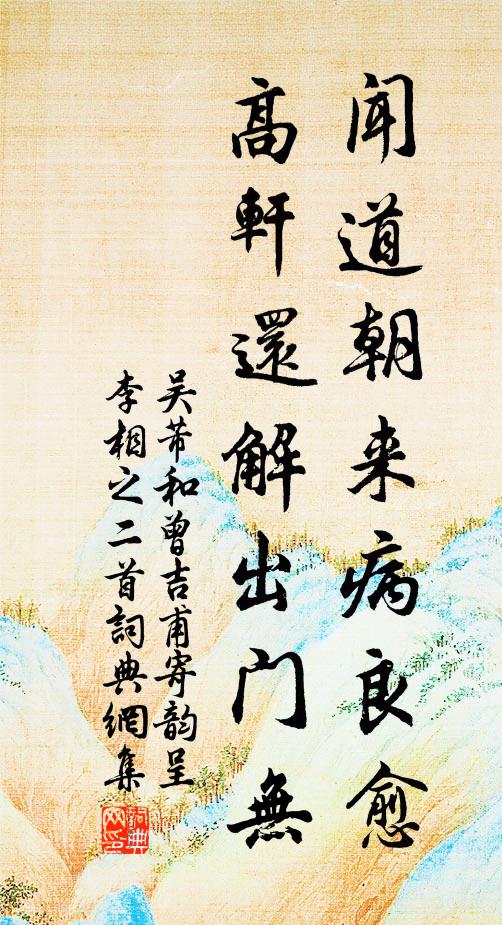 闻道朝来病良愈
高軒還解出门無
吴芾和曾吉甫寄韵呈
李相之二首詞典網集
詞典
网印